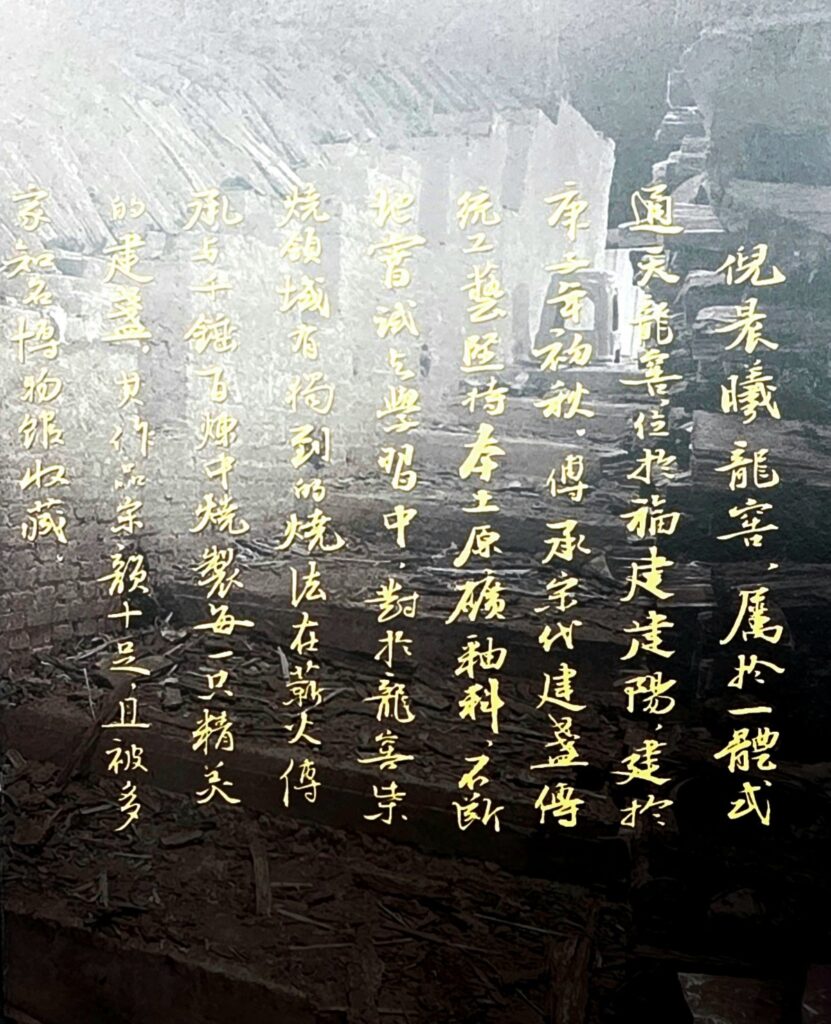 倪晨曦龍窖，属於一體式
通天龍窖，位於福建建陽，建於
庚子年初秋。傳承宋代建盞傳
统工藝堅持本土原礦釉料，不断
地嘗试与學習中，對於龍窖柴
烧领域有獨到的燒法在薪火傳
承与千錘百煉中燒製每一只精美
的建盞，其作品宗韻十足，且被多
家知名博物館收藏。